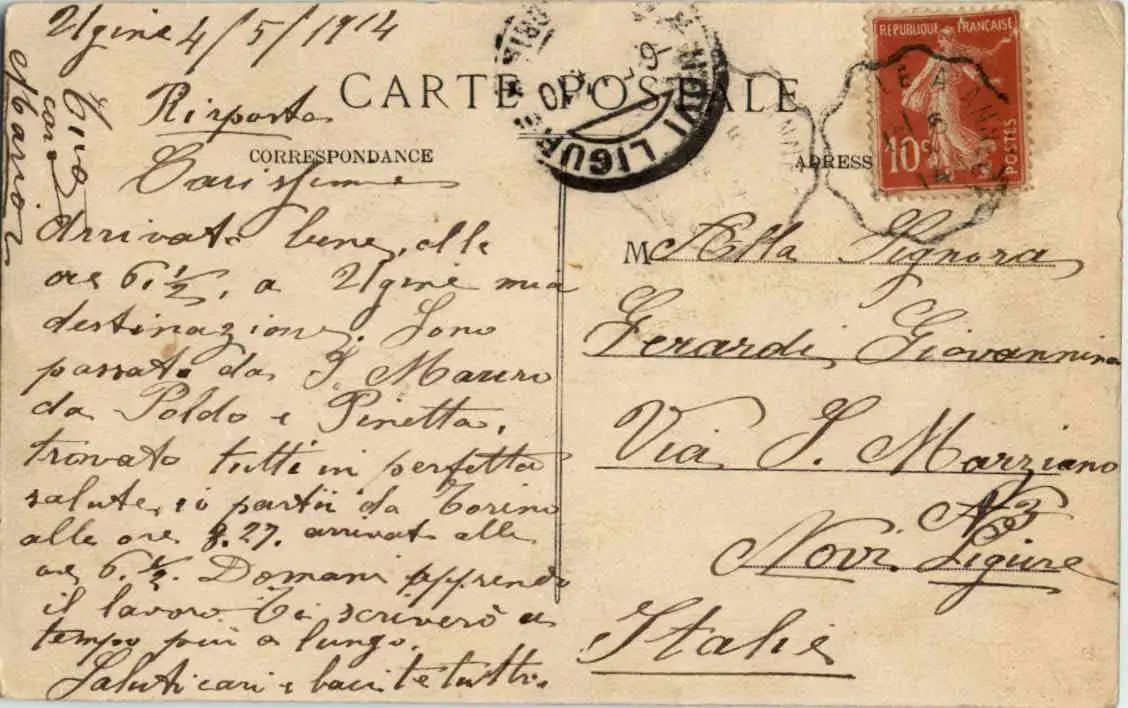 Ugine 4/5/1914
CARTE POSTALE
Risposta
CORRESPONDANCE
Carissima
Arrivato bene, alle
ore 6.½, a Ugine mia
destinazione. Sono
passato da S. Mauro
da Poldo e Pinetta,
trovato tutti in perfetta
salute, io partii da Torino
alle ore 8.27. arrivato alle
ore 6.½. Domani apprendo
il lavoro. Ti scriverò a
tempo più a lungo.
Saluti cari e baci te tutti.
Tuo
caro
NOVI LIGURE
REPUBLIQUE FRANÇAISE
10c
POSTES
ADRESSE
M Alla Signora
Gerardi Giovannina
Via S. Marziano
N 3
Novi Ligure
Italie